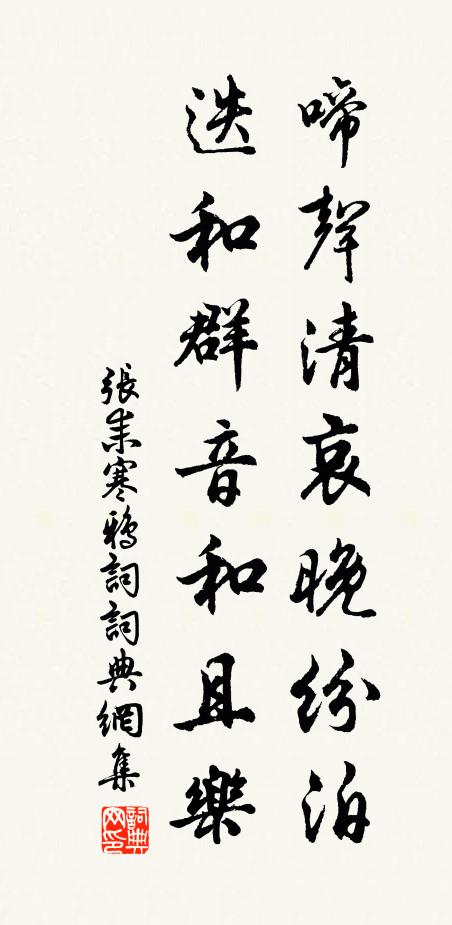 啼聲清哀晚紛泊
迭和群音和且樂
張耒寒鴉詞詞典網集
詞典网印